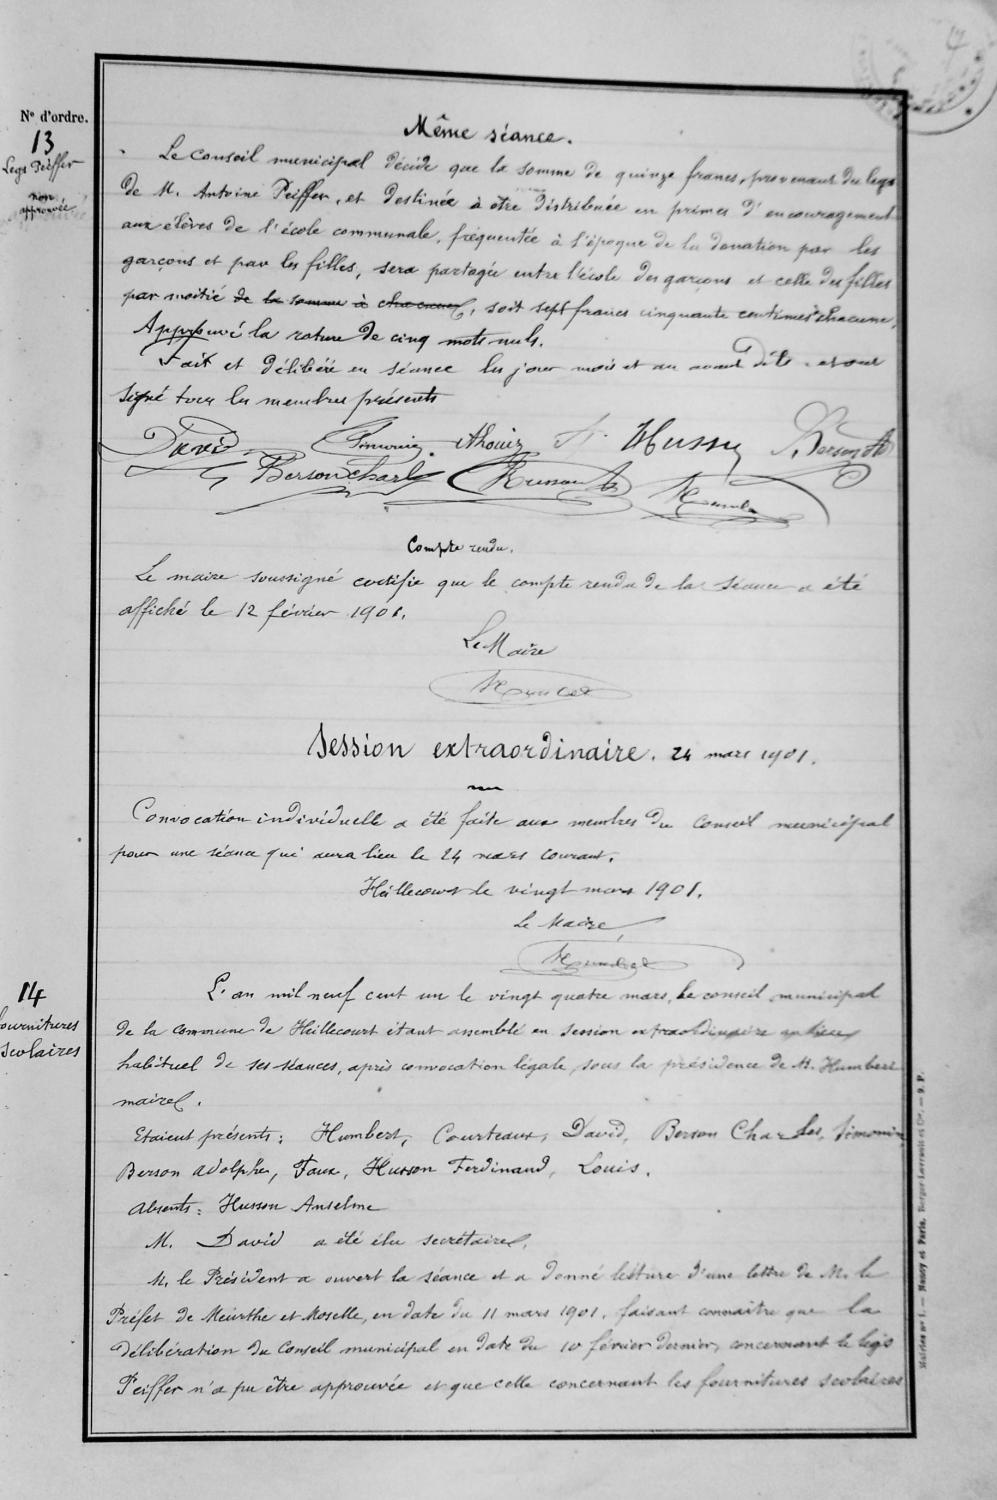 4
Nº d'ordre.
13
Legs Peiffer
non
approuvée
Même séance.
Le conseil municipal décide que la somme de quinze francs, provenant du legs
de M. Antoine Peiffer, et destinée à être distribuée en primes d'encouragement
aux élèves de l'école communale, fréquentée à l'époque de la donation par les
garçons et par les filles, sera partagée entre l'école des garçons et celle des filles
par moitié de la somme à chacune, soit sept francs cinquante centimes chacune.
Approuvé la rature de cinq mots nuls.
Fait et délibéré en séance les jour mois et an avant dits et ont
signé tous les membres présents
David Simonin Husson Berson A
Berson Charles
Compte rendu.
Le maire soussigné certifie que le compte rendu de la séance a été
affiché le 12 février 1901.
Le Maire
Humbert
Session extraordinaire. 24 mars 1901.
Convocation individuelle a été faite aux membres du Conseil municipal
pour une séance qui aura lieu le 24 mars courant.
Heillecourt le vingt mars 1901.
Le Maire,
Humbert
14
Fournitures
scolaires
L'an mil neuf cent un le vingt quatre mars, le conseil municipal
de la commune de Heillecourt étant assemblé en session extraordinaire au lieu
habituel de ses séances, après convocation légale, sous la présidence de M. Humbert
maire.
Etaient présents : Humbert, Courteaux, David, Berson Charles, Simonin
Berson Adolphe, Faux, Husson Ferdinand, Louis.
Absents : Husson Anselme
M. David a été élu secrétaire.
M. le Président a ouvert la séance et a donné lecture d'une lettre de M. le
Préfet de Meurthe et Moselle, en date du 11 mars 1901, faisant connaître que la
délibération du Conseil municipal en date du 10 février dernier, concernant le legs
Peiffer n'a pu être approuvée et que celle concernant les fournitures scolaires
Mairies nº 1. — Nancy et Paris, Berger-Levrault et Cie. — 9. P.